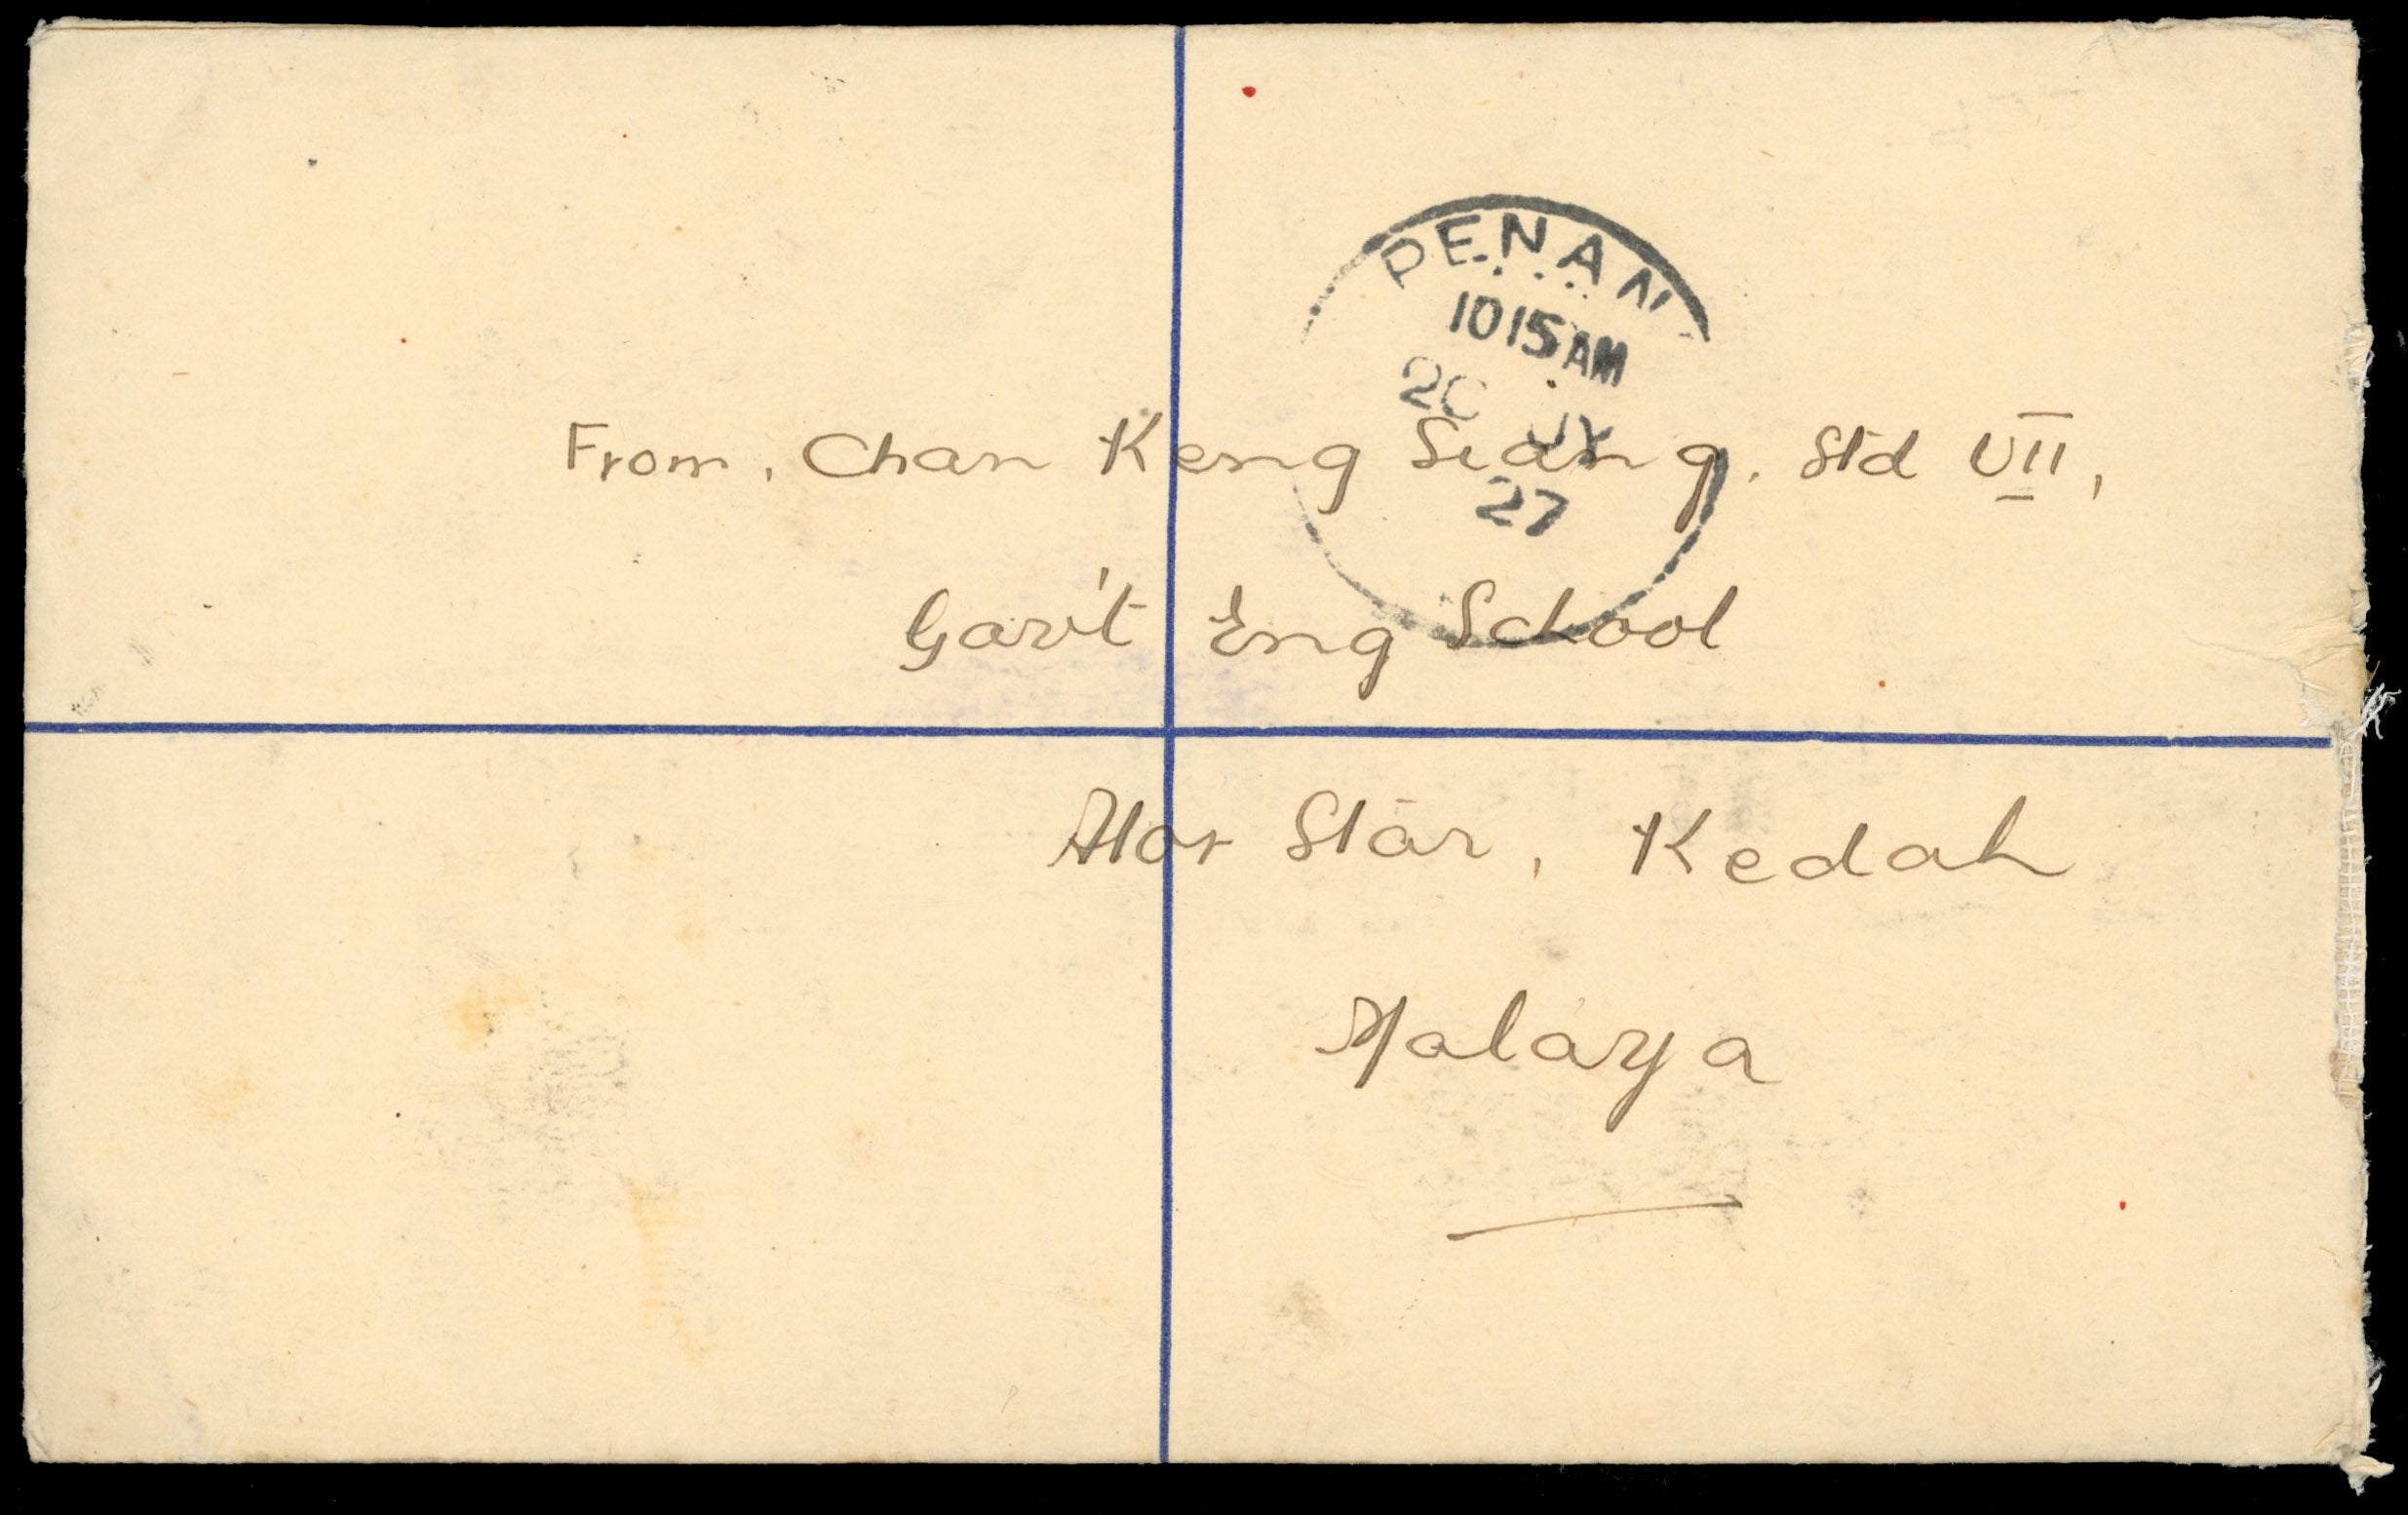 PENAN
1015AM
20 JY
27
From, Chan Keng Siang, Std VII,
Gov't Eng School
Alor Star, Kedah
Malaya